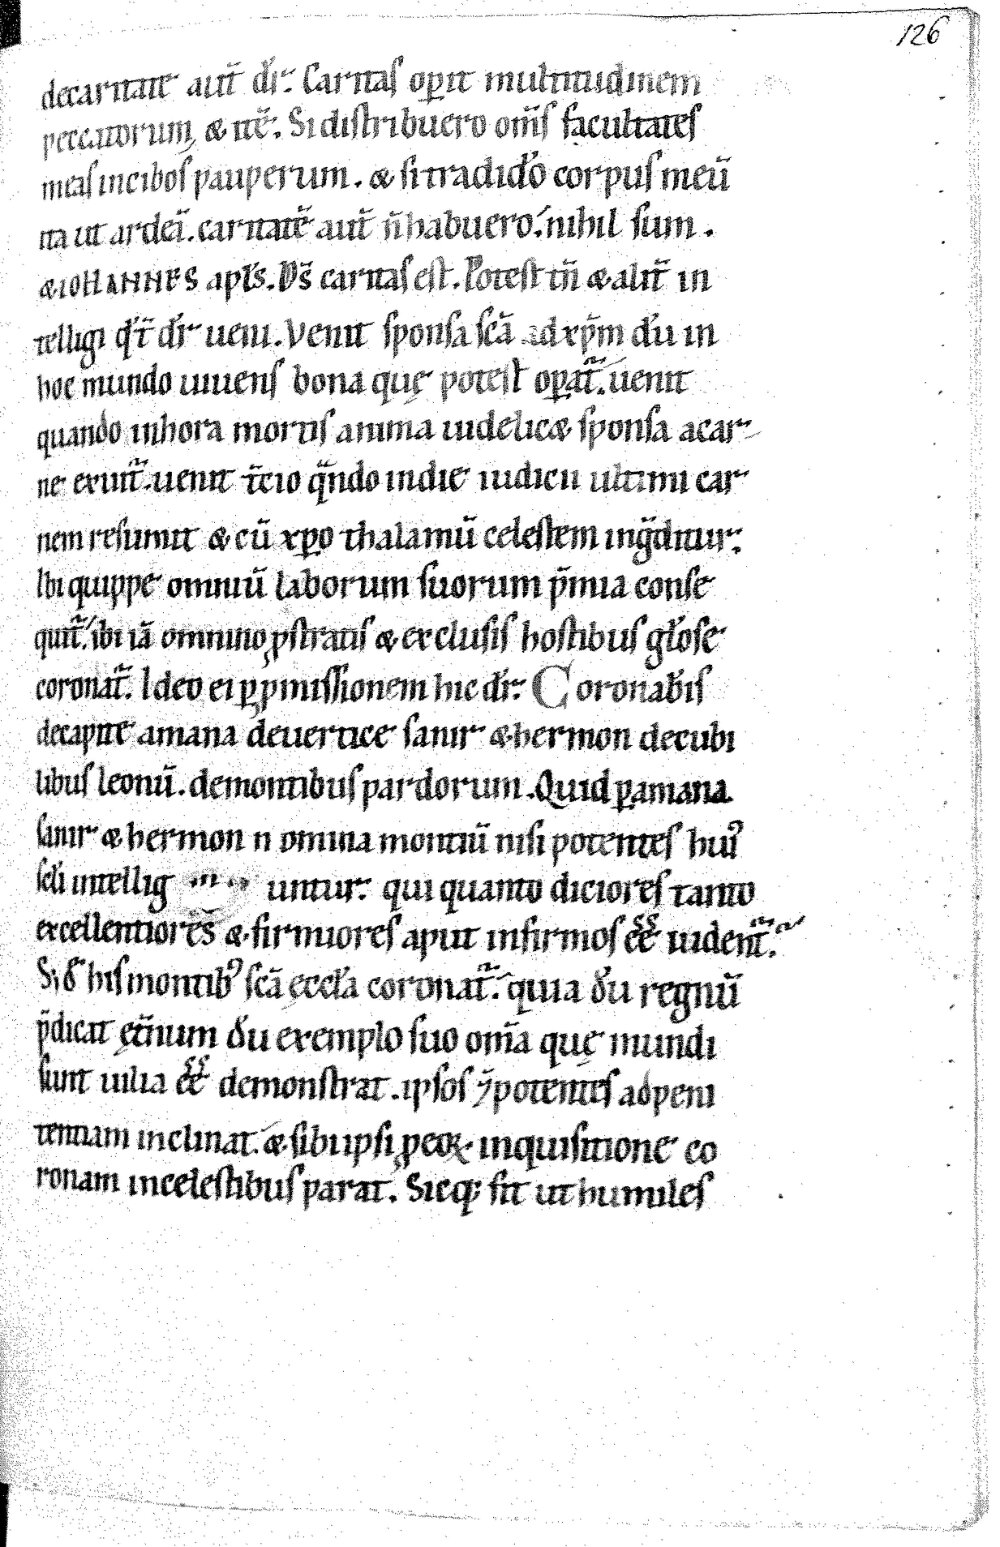 126
decaritate aut̄ dr̄. Caritas opit multitudinem
peccatorum, & itē. Si distribuero om̄s facultates
meas incibos pauperum. & si tradidēo corpus meū
ita ut ardeā. caritatē aut̄ n̄ habuero. nihil sum.
& IOHANNES apl̄s. Ds̄ caritas est. Potest tn̄ & alit̄ in
telligi qt̄ dr̄ ueni. Venit sponsa scā ad xp̄m du in
hoc mundo uiuens bona quę potest opat̄. uenit
quando inhora mortis anima uidelic& sponsa acar
ne exuit̄. uenit tc̄io qn̄do indie iudicii ultimi car
nem resumit & cū xpo thalamū celestem ingditur.
Ibi quippe omniū laborum suorum p̄mia conse
quit̄. ibi iā omnino pstratis & exclusis hostibus glōse
coronat̄. Ideo ei p pmissionem hic dr̄. Coronabis
decapite amana deuertice sanir & hermon decubi
libus leonū. demontibus pardorum. Quid pamana
sanir & hermon n omina montiū nisi potentes huiꝰ
scl̄i intellig untur. qui quanto diciores tanto
excellentiores & firmiores aput infirmos ēē uident̄.
Sꝫ hismontibꝰ scā eccl̄a coronat̄. quia du regnū
p̄dicat ęt̄num du exemplo suo om̄a quę mundi
sunt uilia ēē demonstrat. ipsos īpotentes adpeni
tentiam inclinat. & sibi ipsi peoꝝ inquisitione co
ronam incelestibus parat. Sicq; fit ut humiles